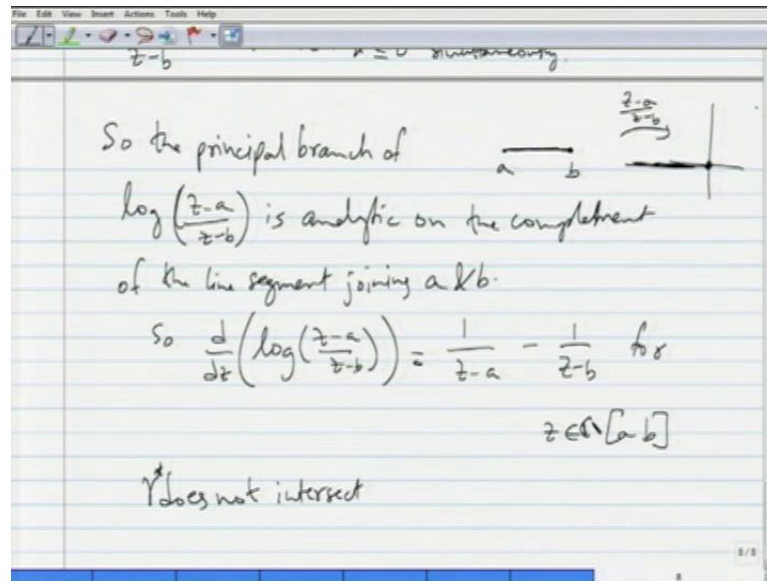 File Edit View Insert Actions Tools Help
z-b x ≤ 0 simultaneously.
So the principal branch of
a b
z-a / z-b
log (z-a / z-b) is analytic on the complement
of the line segment joining a & b.
So d/dz (log (z-a / z-b)) = 1/z-a - 1/z-b for
z ∈ ℂ \ [a b]
γ* does not intersect
8/8
8